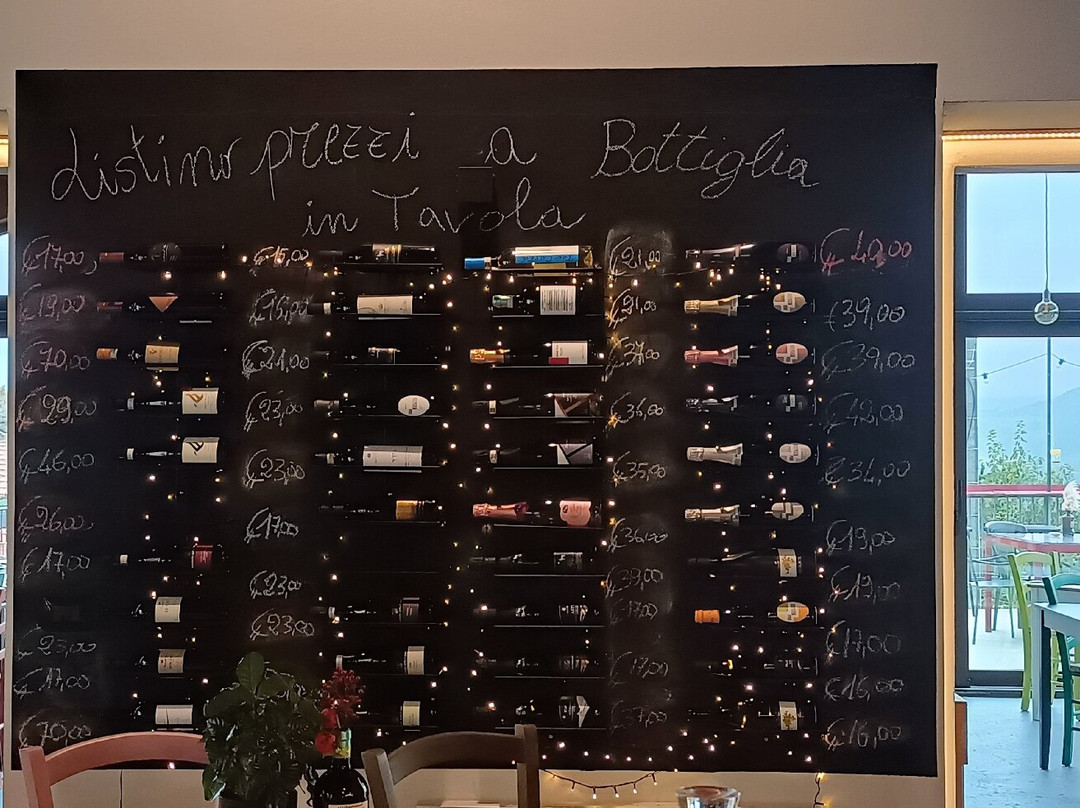 Listino prezzi a Bottiglia
in Tavola
€17,00 €15,00 €21,00 €40,00
€19,00 €15,00 €21,00 €39,00
€70,00 €21,00 €37,00 €39,00
€29,00 €23,00 €36,00
€46,00 €23,00 €35,00 €34,00
€26,00 €17,00 €36,00 €19,00
€17,00 €23,00 €39,00 €19,00
€23,00 €23,00 €17,00 €17,00
€17,00 €17,00 €16,00
€70,00 €37,00 €16,00